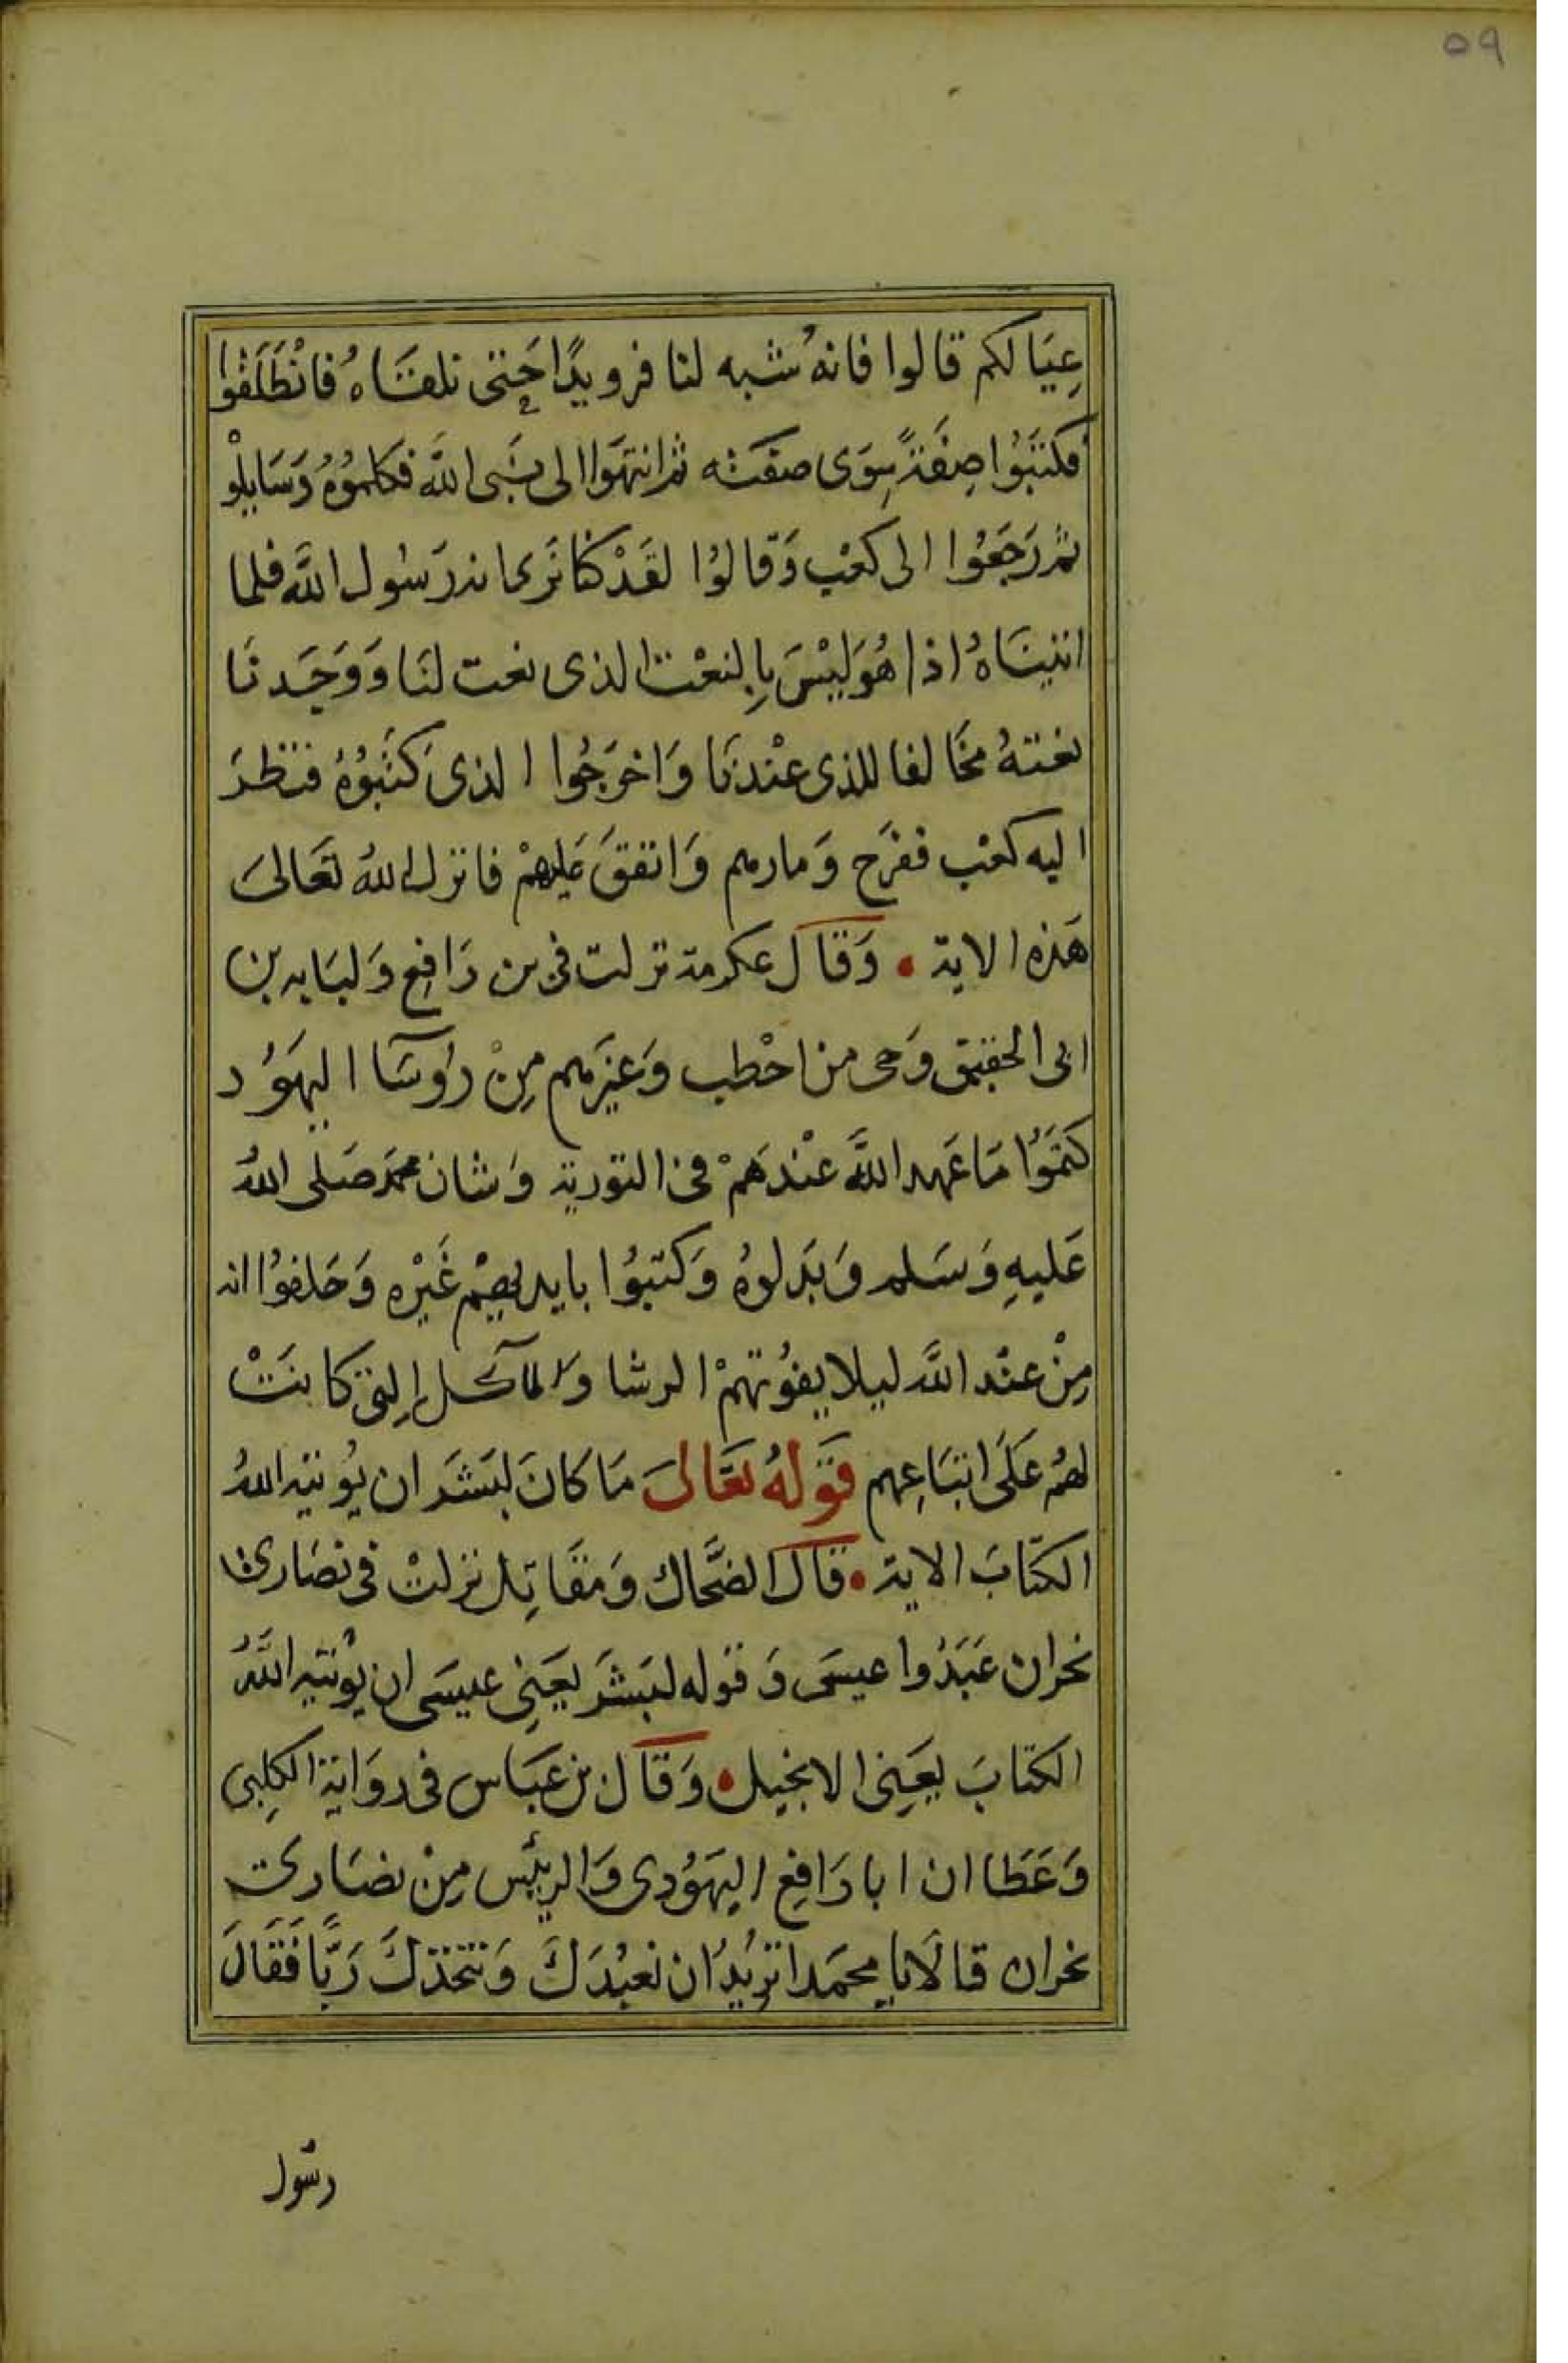 ٥٩
عِيَالكم قالوا فانهُ شبه لنا فرويدًا حَتى نلقَاهُ فانْطَلَقُوا
فكتَبُوا صِفَةً سِوَى صفته ثم انتهَوا الى نبَى اللَّه فكلموُهُ وَسَايلوْ
ثم رَجَعُوا الى كعْبٍ وَقالوُا لقَدْ كنا نَرى انه رَسُول اللَّه فلما
اتينَاهُ اذا هُوَ ليْسَ بِالنعْت الذى نعت لنَا وَوَجَدنَا
نعتهُ مخَالفا للذى عنْدنَا وَاخرَجُوا الذى كَتبوُهُ فنظرَ
اليه كعْب ففرَح وَمارهم وَانفقَ عَليهمْ فانزل اللهُ تعَالىَ
هَذه الاية • وَقاَل عكرمة نزلت فى بن رَافعٍ وَلبَابه بن
ابى الحقيق وَحى من احْطب وَغيَرهم مِنْ روُسَآ اليهَوُد
كتمَوُا مَا عَهد اللَّه عنْدَهمْ فى التورية وَشان محمد صَلى اللهُ
عَليهِ وَسَلم وَبَدلوهُ وَكتبوُا بايديهِمْ غَيْره وَحَلفوُا انه
مِنْ عنْد اللَّه ليلا يفوُتهمْ الرشا والمآكل التى كانتْ
لهُم عَلىَ اتبَاعِهم قَولهُ تعَالىَ مَا كانَ لبَشَر ان يوُتيه اللهُ
الكتَابَ الاية • قال الضَّحاك وَمقَاتِل نزلتْ فى نصَارى
نجران عَبَدُوا عيسَى وَقوله لبَشَر يعَنِى عيسَى ان يوُتيه اللَّهُ
الكتابَ يعَنِى الانجيل • وَقاَل بن عَبَاس فى روَاية الكلِبى
وَعَطا ان ابا رَافِع اليهَوُدى وَالرئيس مِنْ نصَارى
نجران قالاَ يا محمَد اتريدُ ان نعبُدَكَ وَنتخذكَ رَبًّا فَقَالَ
رسُول